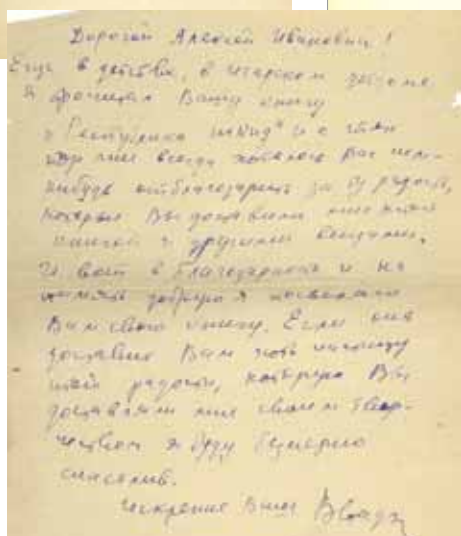 Дорогой Алексей Иванович!
Еще в детстве, в игарском детдоме
я прочитал Вашу книгу
"Республика Шкид" и с этих
пор мне всегда хотелось Вас чем-
нибудь отблагодарить за ту радость,
которую Вы доставили мне этой
книгой и другими вещами.
И вот в благодарность и на
память добрую я посылаю
Вам свою книгу. Если она
доставит Вам хоть частицу
той радости, которую Вы
доставляли мне своим твор-
чеством я буду безмерно
счастлив.
Искренне Ваш